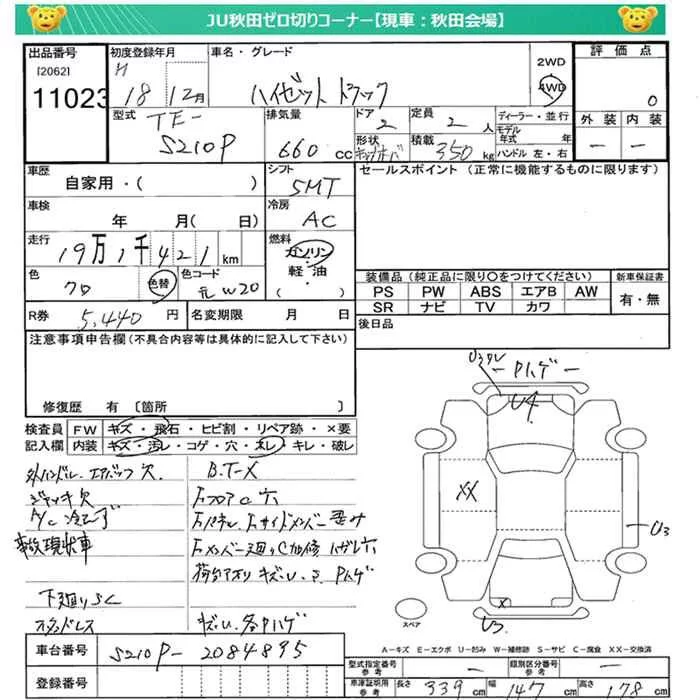 JU秋田ゼロ切りコーナー【現車：秋田会場】
出品番号 初度登録年月 車名・グレード 2WD 評価点
[2062] H 4WD 0
11023 18 12月 ハイゼット トラック 外装 内装
型式 排気量 ドア 定員 ディーラー・並行 － －
TE- 2 2人 モデル年式 年
S210P 660cc 形状 積載 350kg ハンドル 左・右
車歴 シフト セールスポイント（正常に機能するものに限ります）
自家用・（ ） 5MT
車検 冷房
年 月（ 日） AC
走行 燃料
19万1千421km ガソリン
軽・油
色 色替 色コード （ ）
クロ 元W20
装備品（純正品に限り○をつけてください） 新車保証書
PS PW ABS エアB AW 有・無
SR ナビ TV カワ
R券 5,440円 名変期限 月 日 後日品
注意事項申告欄（不具合内容等は具体的に記入して下さい）
修復歴 有〔箇所 〕
検査員 FW キズ・飛石・ヒビ割・リペア跡・×要
記入欄 内装 キズ・汚レ・コゲ・穴・スレ・キレ・破レ
U3ワレ －Pハゲ－
U4
XX
U3
X
U3
外ハンドル、エアバッグ欠 B.T-X
ジャッキ欠 Fフロアc穴
A/C冷えず
事故現状車
下廻りSC
スペア
A－キズ E－エクボ U－凹み W－補修跡 S－サビ C－腐食 XX－交換済
車台番号 S210P-2084895
登録番号
型式指定番号 参考 類別区分番号 参考
車庫証明用 参考 長さ 339cm 幅 147cm 高さ 178cm